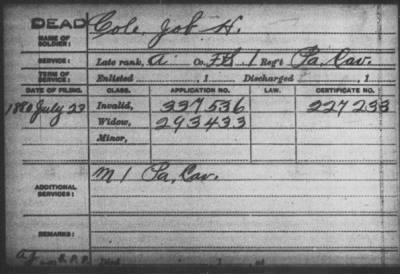 DEAD
NAME OF SOLDIER: Cole, Job H.
SERVICE: Late rank, Co. 1 Reg't Pa. Cav.
TERM OF SERVICE: Enlisted , 1 Discharged , 1
DATE OF FILING. CLASS. APPLICATION NO. LAW. CERTIFICATE NO.
1880 July 23 Invalid, 337,536 227,233
Widow, 293433
Minor,
ADDITIONAL SERVICES: M 1 Pa, Cav.
REMARKS: